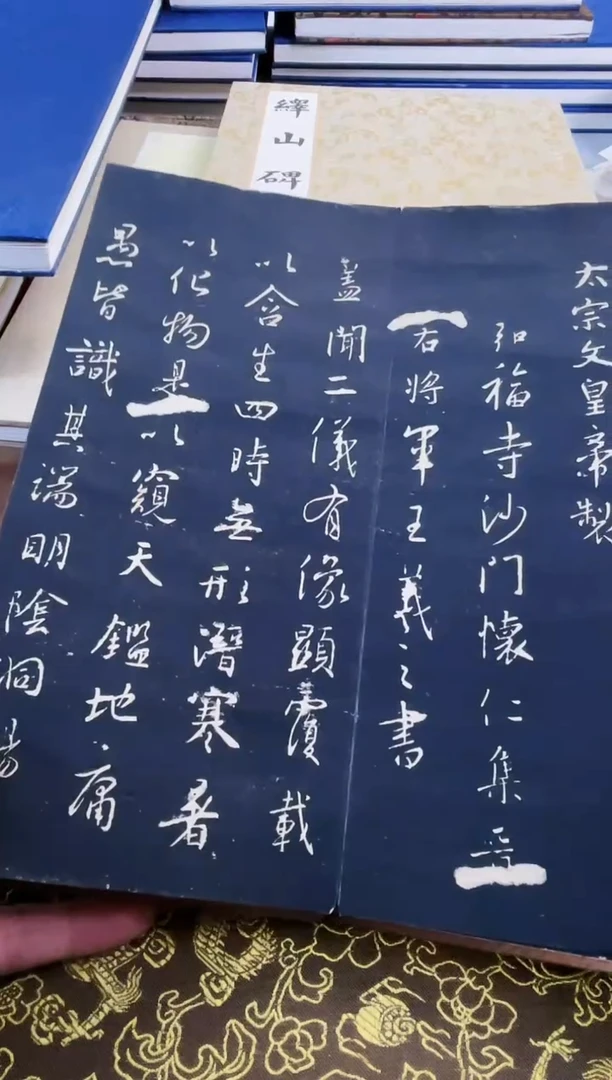 繹山碑
太宗文皇帝製
弘福寺沙門懷仁集晉
右將軍王羲之書
蓋聞二儀有像顯覆載
以含生四時無形潛寒暑
以化物是以窺天鑑地庸
愚皆識其端明陰洞陽